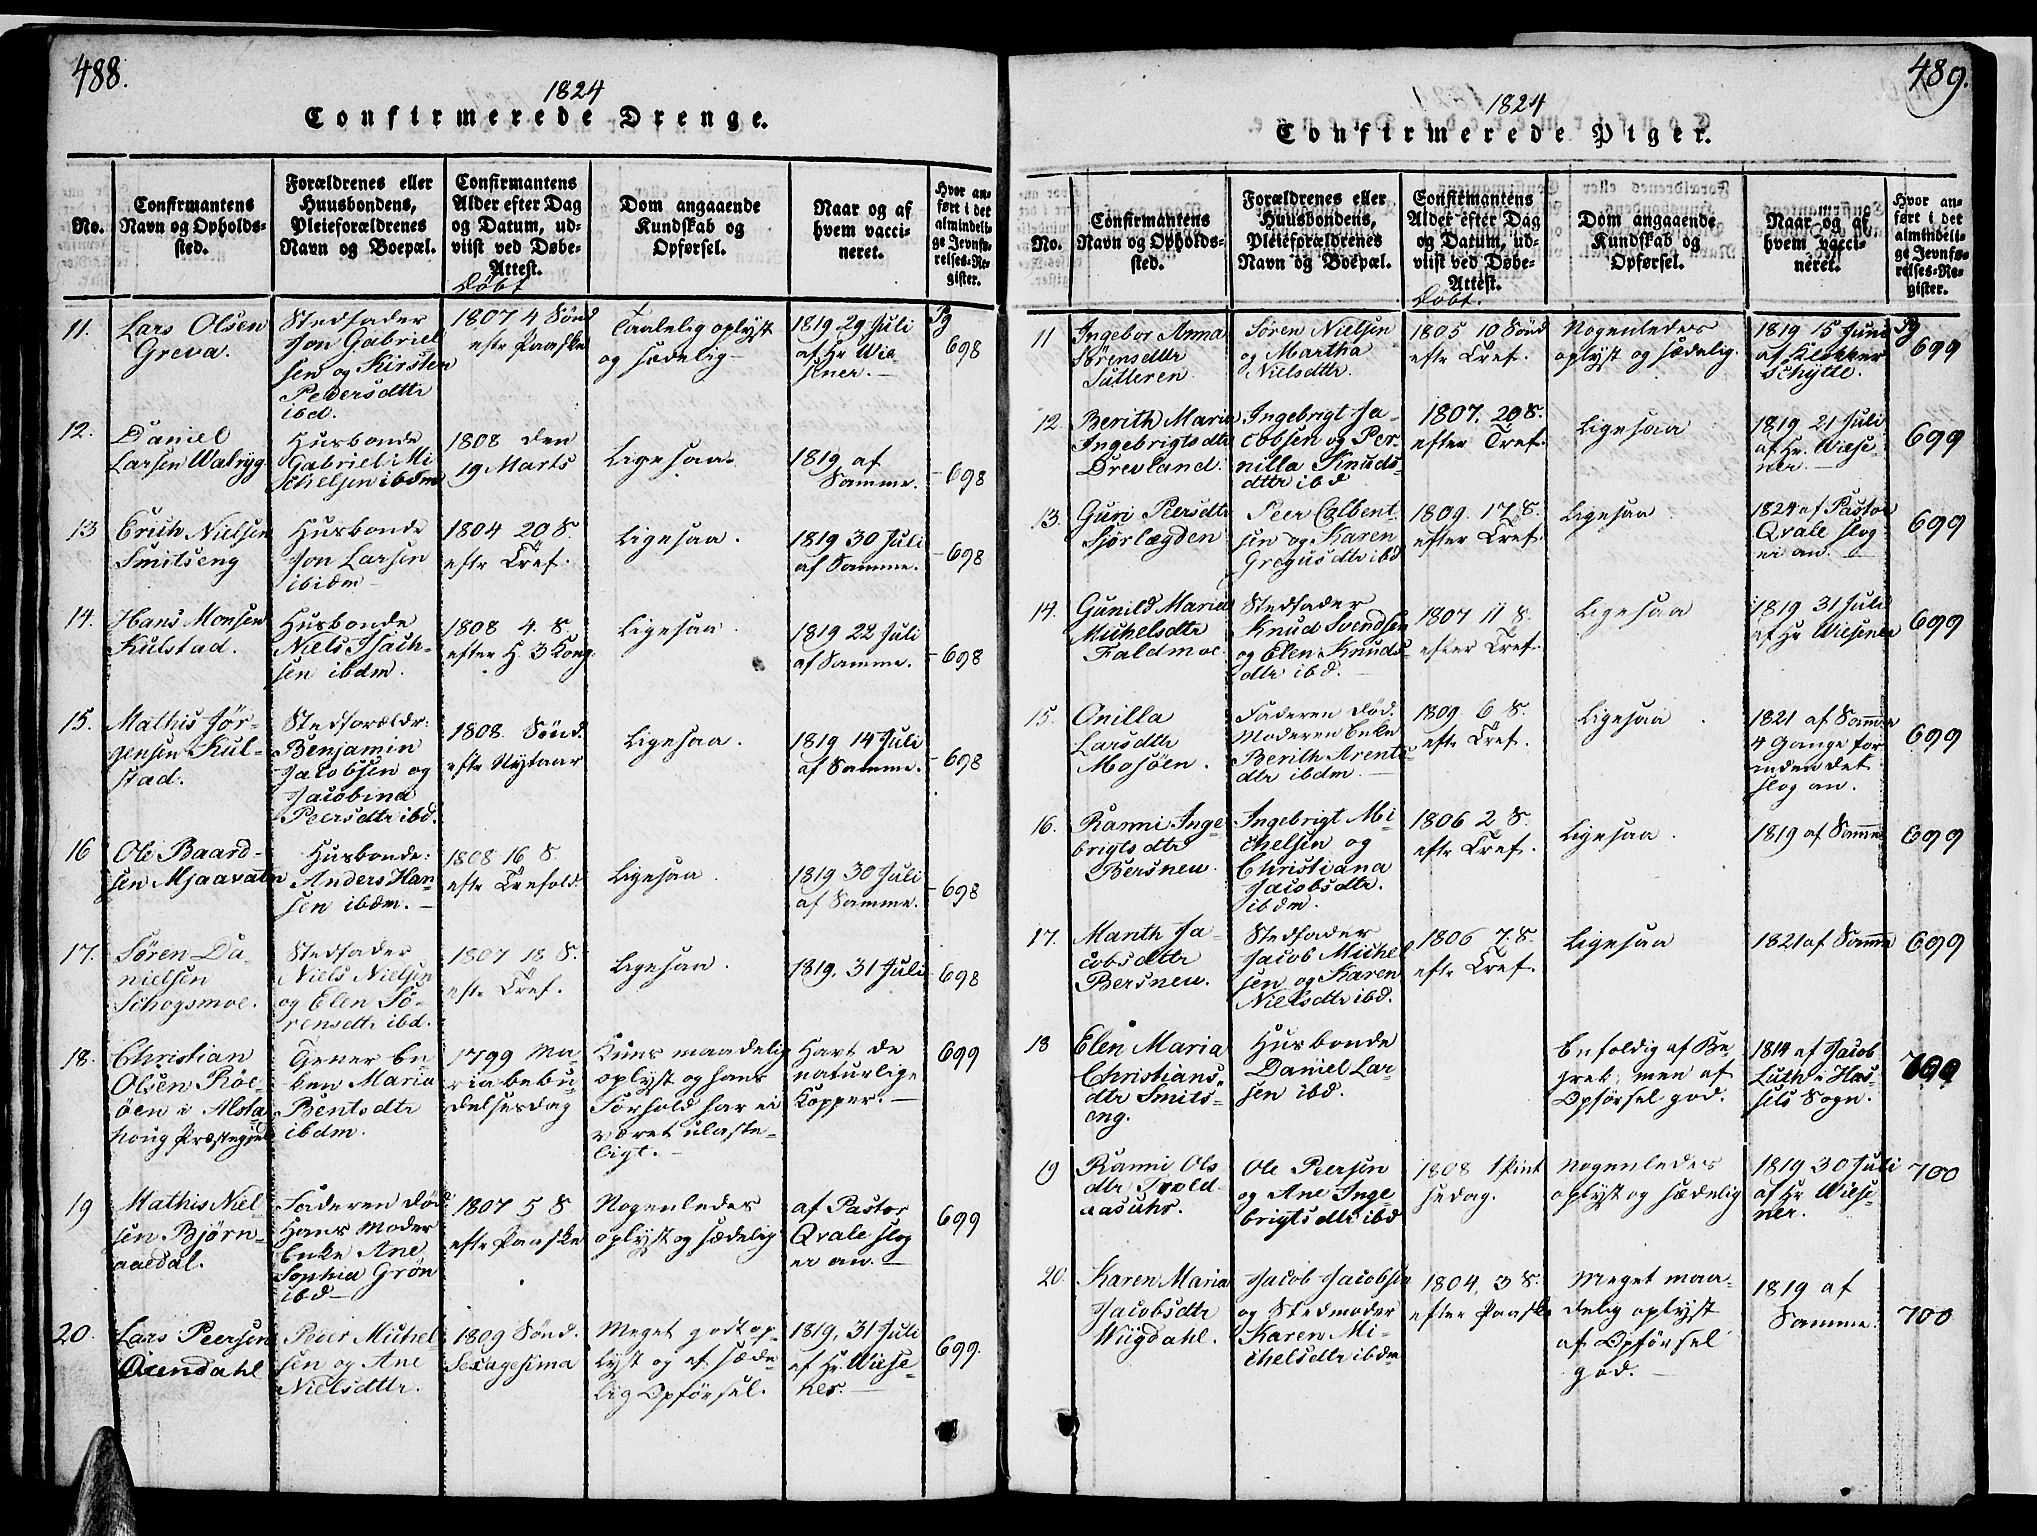 488.
1824
Confirmerede Drenge.
No.
Confirmantens
Navn og Opholds-
sted.
Forældrenes eller
Huusbondens,
Pleieforældrenes
Navn og Boepæl.
Confirmantens
Alder efter Dag
og Datum, ud-
viist ved Døbe-
Attest.
Döbt
Dom angaaende
Kundskab og
Opførsel.
Naar og af
hvem vacci-
neret.
Hvor an-
ført i det
almindeli-
ge Jevnfø-
relses-Re-
gister.
11.
Lars Olsen
Greva.
Stedfader
Jon Gabriel
sen og Kirsten
Pedersdtr
ibd.
1807 4 Sönd
eftr Paaske
Taalelig oplyst
og sædelig
1819 29 Juli
af Hr Wie
sner.
Pg
698
12.
Daniel
Larsen Walryg
Husbonde
Gabriel Mi
chelsen ibdm
1808 den
19 Marts
Ligesaa.
1819 af
Samme.
698
13
Erich Nielsen
Smitseng
Husbonde
Jon Larsen
ibidm
1804 20 S.
eftr Tref.
Ligesaa.
1819 30 Juli
af Samme.
698
14.
Hans Monsen
Kulstad.
Husbonde
Niels Isach-
sen ibdm.
1808 4. S
efter H. 3 Kong
Ligesaa.
1819 22 Juli
af Samme.
698
15.
Mathis Jör-
gensen Kul-
stad.
Stedforældr:
Benjamin
Jacobsen og
Jacobina
Peersdtr ibd.
1808. Sönd.
eftr Nytaar
Ligesaa.
1819 14 Juli
af Samme.
698
16
Ole Baard-
sen Mjaavatn
Husbonde:
Anders Han-
sen ibdm.
1808 16 S.
eftr Trefold.
Ligesaa.
1819 30 Juli
af Samme.
698
17.
Sören Da-
nielsen
Schogsmoe.
Stedfader
Niels Nielsen
og Elen Sö-
rensdtr ibd.
1807 18 S.
eftr Tref.
Ligesaa.
1819. 31 Juli
698
18.
Christian
Olsen Röe-
öen i Alsta
houg Præstegjeld
Tjener En
ken Maria
Bentsdtr
ibdm.
1799 Ma-
ria bebu-
delsesdag
Kuns maadelig
oplyst og hans
Forhold har ei
været ulaste-
ligt.
Havt de
naturlige
Kopper.
699
19
Mathis Niel-
sen Björn-
aaedal.
Faderen död
Hans Moder
Enke Ane
Sophia Grön
ibd
1807 5 S
eftr Paaske
Nogenledes
oplyst og sædelig
af Pastor
Qvale slog
ei an.
699
20.
Lars Peersen
Peder Michel
sen og Ane
Nielsdtr.
1809 Sönd.
Sexagesima
Meget godt op-
lyst og af sæde-
lig Opförsel.
1819, 31 Juli
af Hr Wiese-
ner.
699.
489.
1824
Confirmerede Piger.
No.
Confirmantens
Navn og Opholds-
sted.
Forældrenes eller
Huusbondens,
Pleieforældrenes
Navn og Boepæl.
Confirmantens
Alder efter Dag
og Datum, ud-
viist ved Døbe-
Attest.
Döbt.
Dom angaaende
Kundskab og
Opførsel.
Naar og af
hvem vacci-
neret.
Hvor an-
ført i det
almindeli-
ge Jevnfø-
relses-Re-
gister.
11
Ingebor Anna
Sörensdtr
Sutteren
Sören Nielsen
og Martha
Nielsdtr.
1805 10 Sönd
eftr Tref.
Nogenledes
oplyst og sædelig.
1819 15 Juni
af Klokker
Schytte.
Pg
699
12.
Berith Maria
Ingebrigtsdtr
Drevland.
Ingebrigt Ja-
cobsen og Per-
nilla Knuds-
dttr ibd
1807. 20 S.
efter Tref.
Ligesaa
1819 21 Juli
af Hr. Wiese-
ner.
699
13.
Guri Peersdtr
Sjörlægden
Peer Calbent-
sen og Karen
Gregusdtr ibd
1809. 17 S.
efter Tref.
Ligesaa.
1824 af Pastor
Qvale slog
ei an.
699
14.
Gunild Maria
Michelsdtr
Faldmoe.
Stedfader
Knud Svendsen
og Elen Knuds-
dtr ibd.
1807 11 S.
efter Tref.
Ligesaa
1819 31 Juli
af Hr Wiesener
699
15.
Onilla
Larsdtr
Mosöen.
Faderen död.
Moderen Enke
Berith Arents-
dtr ibdm.
1809. 6 S.
eftr Tref.
Ligesaa.
1821 af Samme
4 Gange for
inden det
slog an.
699
16.
Ranni Inge
brigtsdtr
Bersneu.
Ingebrigt Mi-
chelsen og
Christiana
Jacobsdtr.
ibdm.
1806 2 S.
eftr Tref.
Ligesaa.
1819 af Samme
699
17.
Marith Ja-
cobsdtr
Bersneu.
Stedfader
Jacob Michel
sen og Karen
Nielsdtr ibd.
1806 7. S.
eftr Tref.
Ligesaa
1821 af Samme
699
18
Elen Maria
Christians-
dtr Smits-
eng.
Husbonde
Daniel Lar-
sen ibd.
Enfoldig af Be-
greb, men af
Opförsel god.
1814 af Jacob
Lüth i Has-
sels Sogn.
700
19
Ranni Ols
dtr
Ole Peersen
og Ane Inge-
brigtsdtr ibd
1808 1 Pint
sedag.
Nogenledes
oplyst og sædelig
1819 30 Juli
af Hr Wiese-
ner.
700
20.
Karen Maria
Jacobsdtr
Wiigdahl.
Jacob Jacobsen
og Stedmoder
Karen Mi-
chelsdtr ibdm
1804, 3 S.
efter Paaske
Meget maa-
delig oplyst
af Opförsel
god.
1819 af
Samme.
700